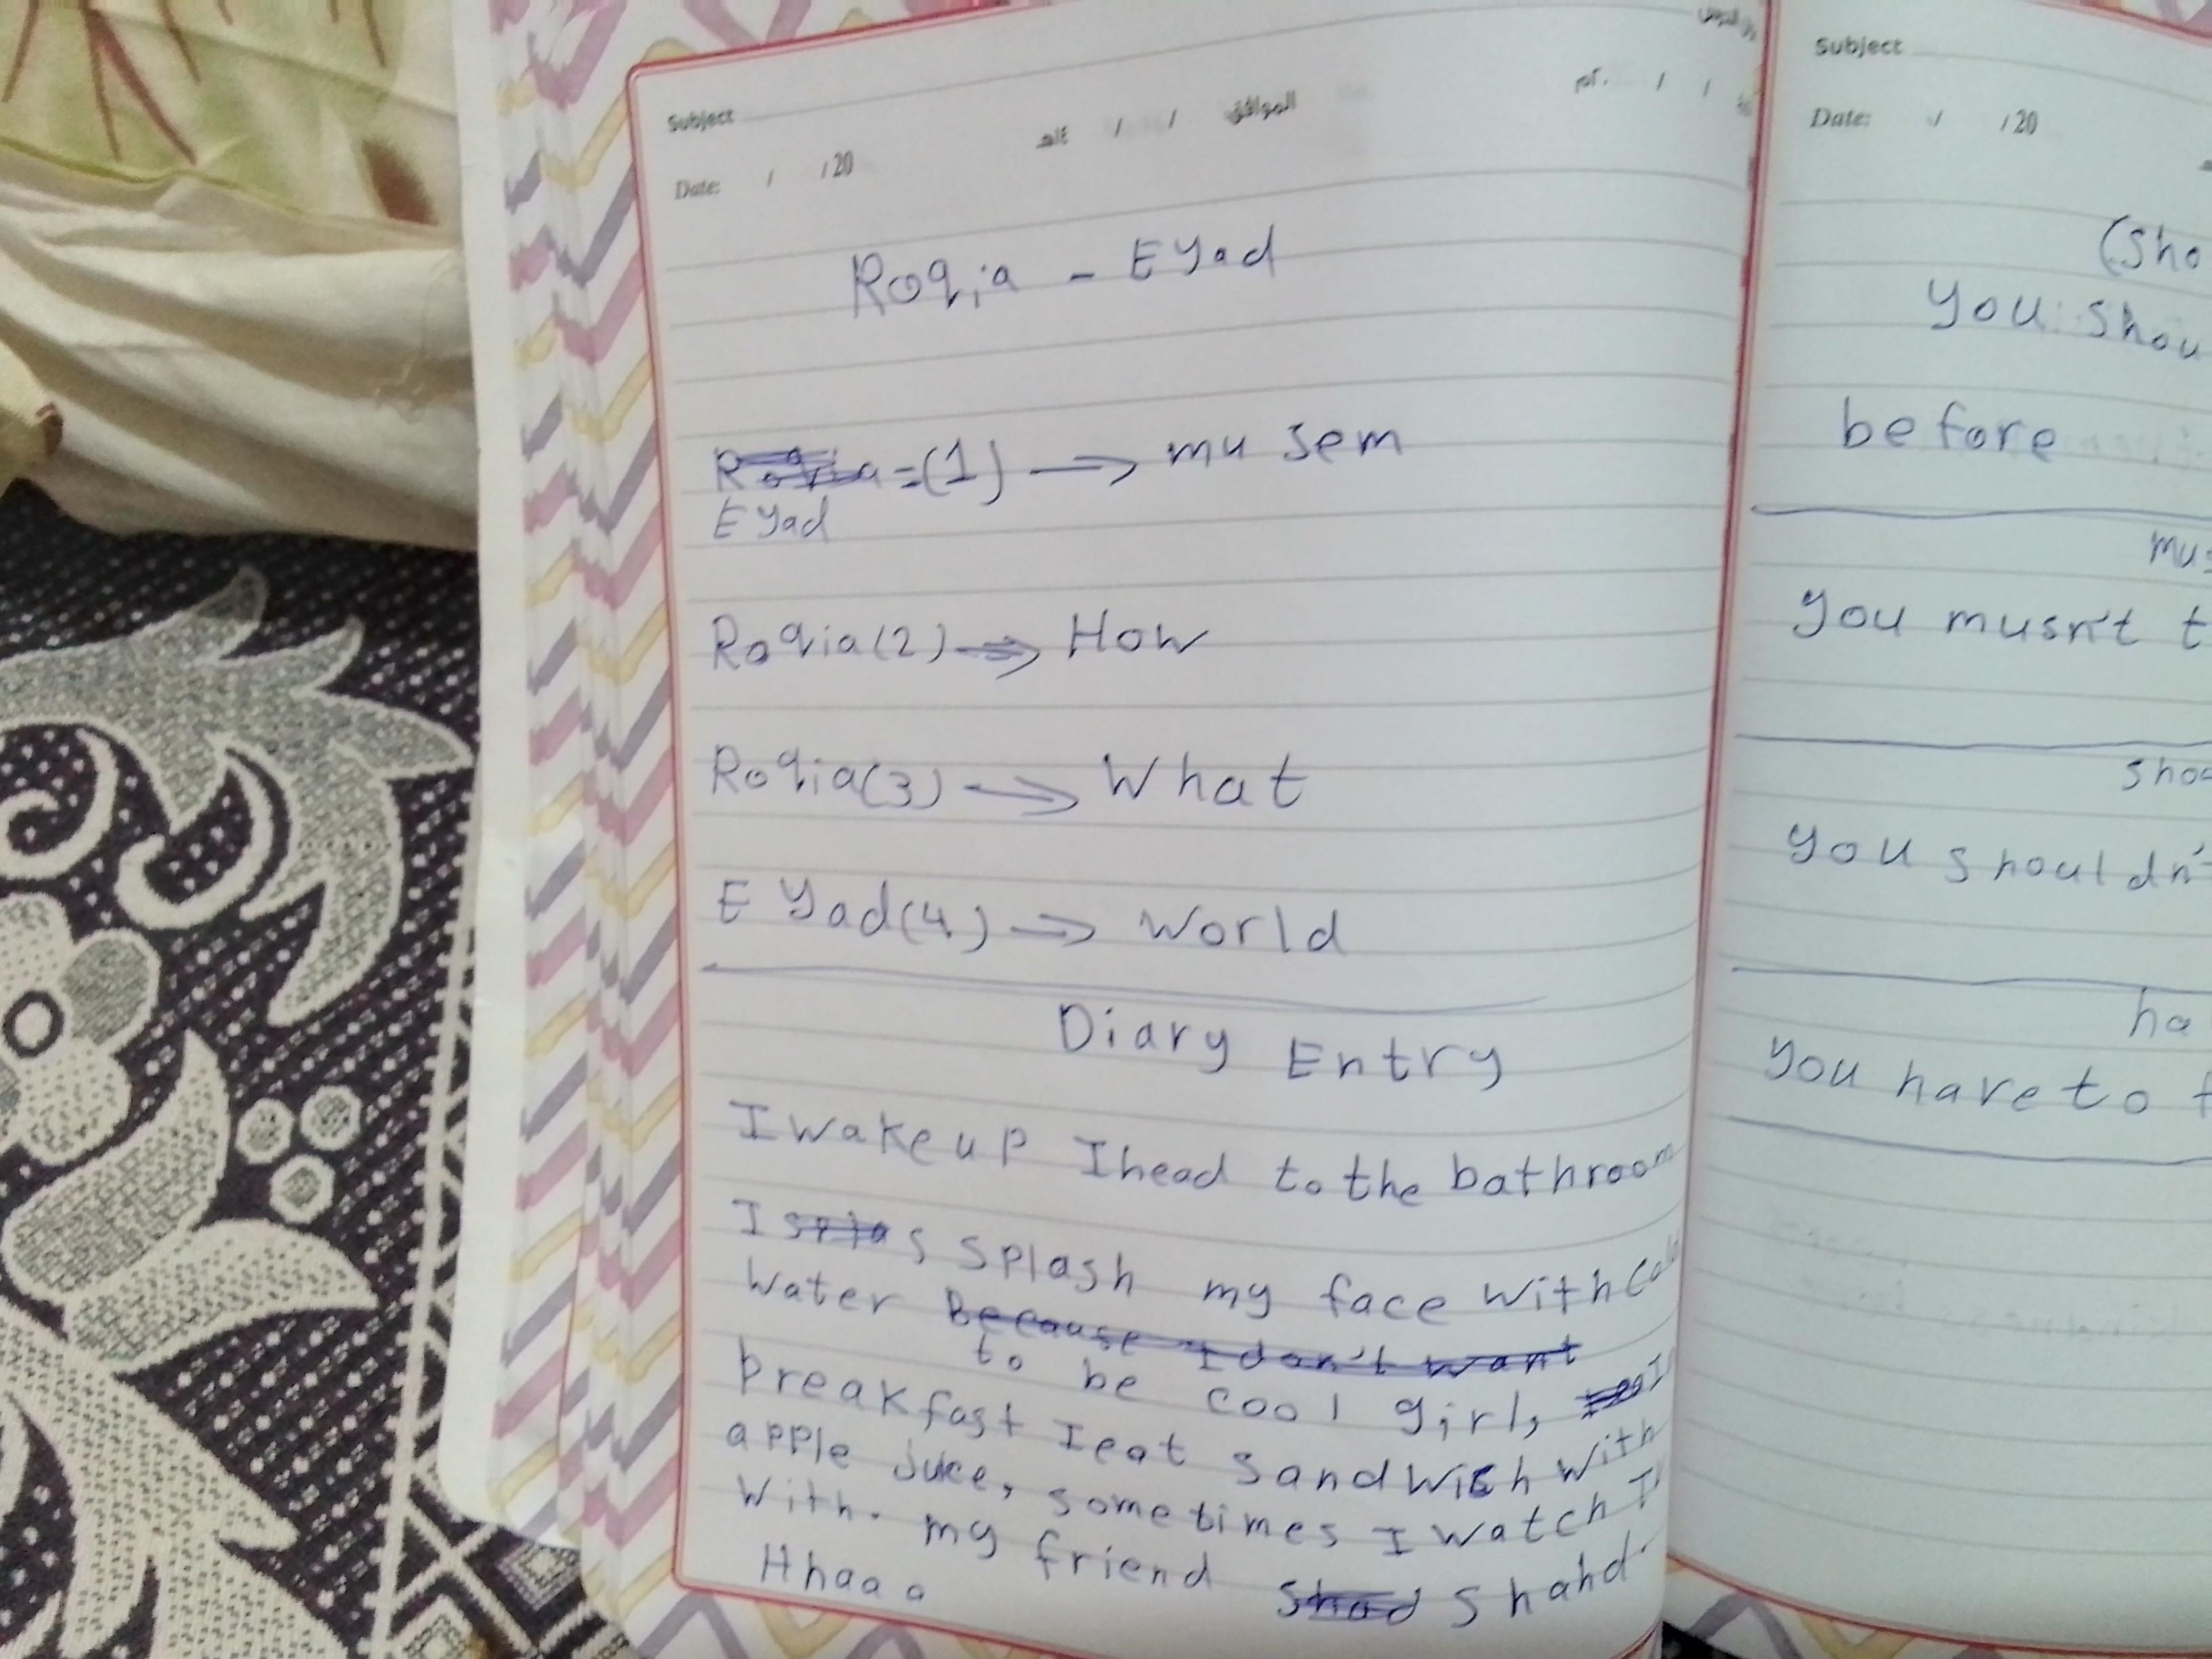 Subject
Date: / / 20
الموافق / /
Roqia - EYad
Roqia =(1) → mu sem
EYad
Roqia(2) → How
Roqia(3) → What
EYad(4) → World
Diary Entry
I wake up I head to the bathroom
I splas splash my face with cold
Water Because I don't want
to be cool girl,
breakfast I eat sandwich with
apple juice, sometimes I watch
With. my friend Shad Shahd.
Hhaaa
Subject
Date: / / 20
(Sho
You shou
before
mus
you musn't t
shou
you shouldn't
ha
you have to